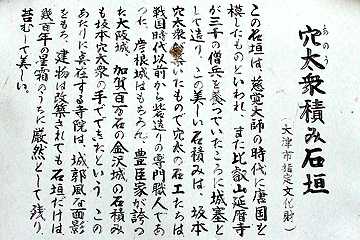 あのう
穴太衆積み石垣
（大津市指定文化財）
この石垣は、慈覚大師の時代に唐国を
模したものといわれ、また比叡山延暦寺
が三千の僧兵を養っていたころに城塞と
して造り、この美しい石積みは、坂本
穴太衆が築いたもので穴太の石工たちは
戦国時代以前から岩造りの専門職人であ
った。彦根城はもちろん、豊臣家が誇っ
た大阪城、加賀百万石の金沢城の石積み
も坂本穴太衆の手でできたという。この
あたりに長在する寺院は、城郭風な面影
をもち、建物は改築されても石垣だけは
幾百年の星霜のうちに厳然として残り、
苔むして美しい。